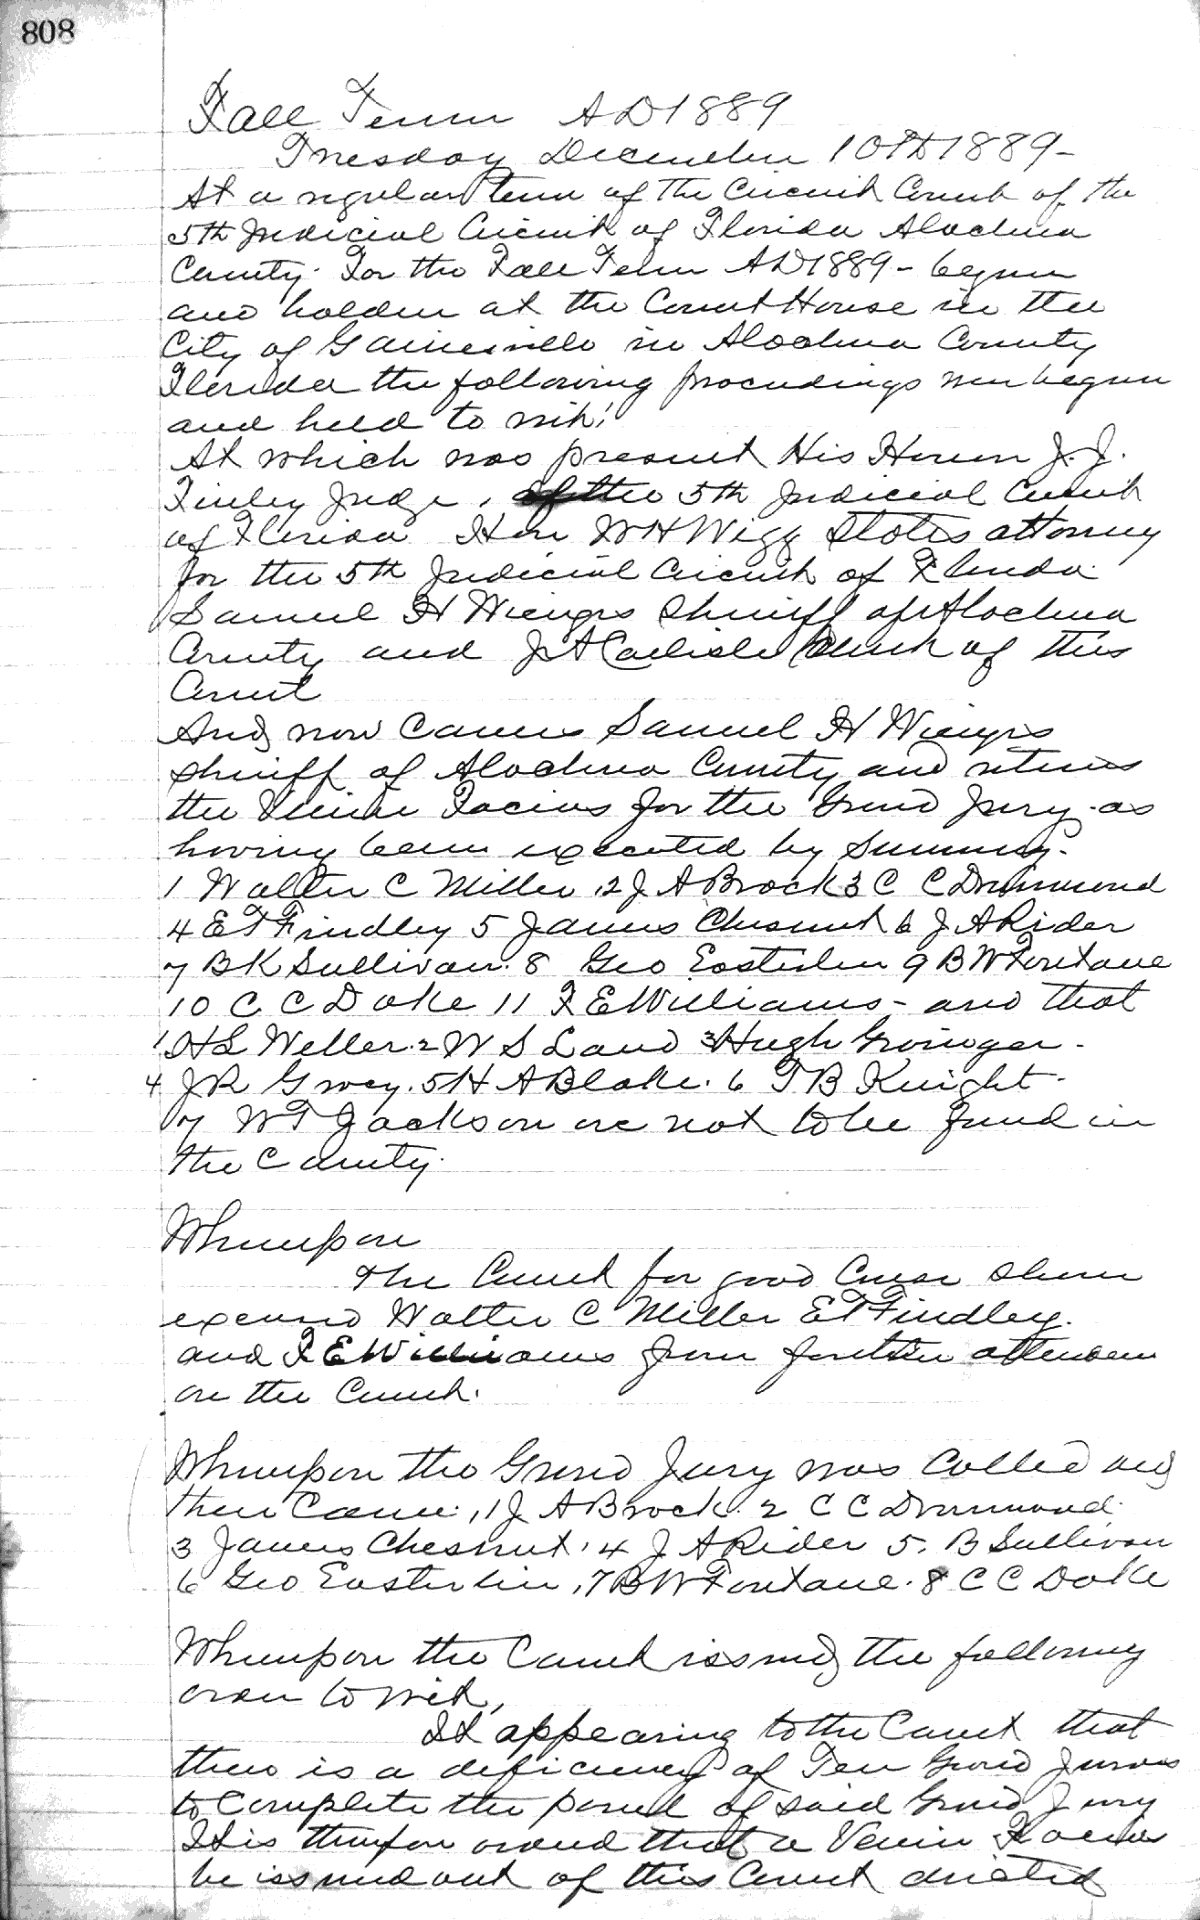 808
Fall Term AD 1889
Tuesday December 10th 1889-
At a regular term of the Circuit Court of the
5th Judicial Circuit of Florida Alachua
County. For the Fall Term AD 1889 - begun
and holden at the Court House in the
City of Gainesville in Alachua County
Florida the following proceedings were begun
and held to wit:
At which was present His Honor J. J.
Finley Judge, of the 5th Judicial Circuit
of Florida Hon W H Wigg States attorney
for the 5th Judicial Circuit of Florida
Samuel H Wienges Sheriff of Alachua
County and J A Carlisle Clerk of this
Court
And now comes Samuel H Wienges
Sheriff of Alachua County and returns
the Venire Facias for the Grand Jury as
having been executed by Summing.
1 Walter C Miller 2 J A Brock 3 C C Drummond
4 E T Findley 5 James Chesnut 6 J A Rider
7 B K Sullivan. 8 Geo Easterlin 9 B W Fontane
10 C C Doke 11 F E Williams - and that
1 H L Weller. 2 W S Land 3 Hugh Granger -
4 J R Gray. 5 H A Blake. 6 T B Knight -
7 W T Jackson are not to be found in
the County.
Whereupon
The Court for good Cause shown
excused Walter C Miller E T Findley.
and F E Williams from further attendance
on the Court.
Whereupon the Grand Jury was called and
there came: 1 J A Brock. 2 C C Drummond
3 James Chesnut. 4 J A Rider 5. B Sullivan
6 Geo Easterlin, 7 B W Fontane. 8 C C Doke
Whereupon the Court issued the following
order to wit,
It appearing to the Court that
there is a deficiency of Ten Grand Jurors
to complete the panel of said Grand Jury
It is therefore ordered that a Venire Facias
be issued out of this Court directed